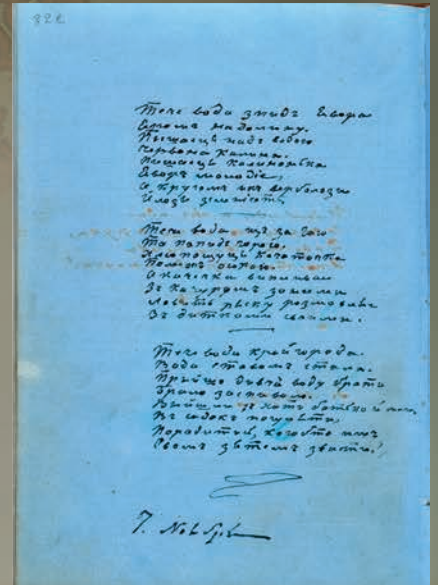 Тече вода зпидъ Явора
Яромъ на долину.
Пышаеця надъ водою
Червона калина.
Пышаеця калинонька
Яворъ молодіе,
А кругомъ ихъ верболозы
Й лозы зеленіють.
Тече вода изъ за гаю
Та попидъ горою.
Хлюпощуця качаточка
Помежъ осокою.
А качечка выпливае
Зъ качуромъ за ными
Ловыть ряску розмовляе
Зъ дитками своими.
Тече вода край города.
Вода ставомъ стала.
Прыйшло дивча воду браты
Брало заспивало.
Выйшли зъ хаты батько й маты
Въ садокъ погуляты,
Порадитысь, когобто имъ
Своимъ зятемъ зваты?
7. Ноября